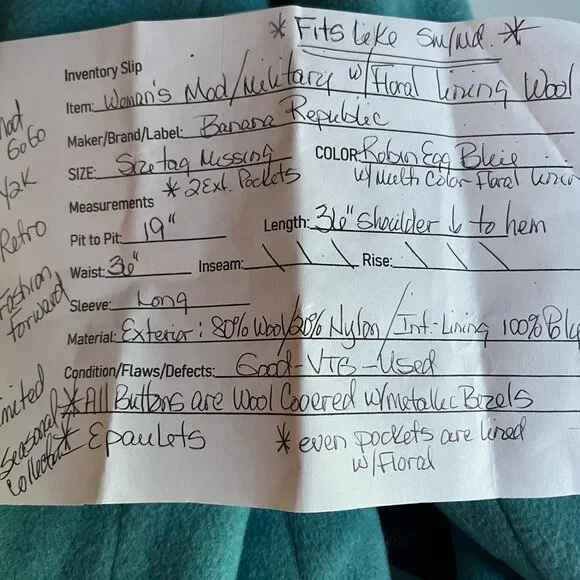 * Fits like Sm/Md. *
Inventory Slip
Item: Woman's Mod/Military w/ Floral Lining Wool
Maker/Brand/Label: Banana Republic
SIZE: Size tag Missing COLOR: Robin Egg Blue
* 2 Ext. Pockets w/ Multi Color Floral Lining
Measurements
Pit to Pit: 19" Length: 36" Shoulder to hem
Waist: 36" Inseam: \ \ \ Rise: \ \ \
Sleeve: Long
Material: Exterior: 80% Wool/20% Nylon/Int.-Lining 100% Poly
Condition/Flaws/Defects: Good-VTG-Used
* All Buttons are Wool Covered w/metallic Bezels
* Epaulets * even pockets are lined
w/Floral
GoGo
Y2K
Retro
Fashion
forward
Limited
Seasonal
Collection